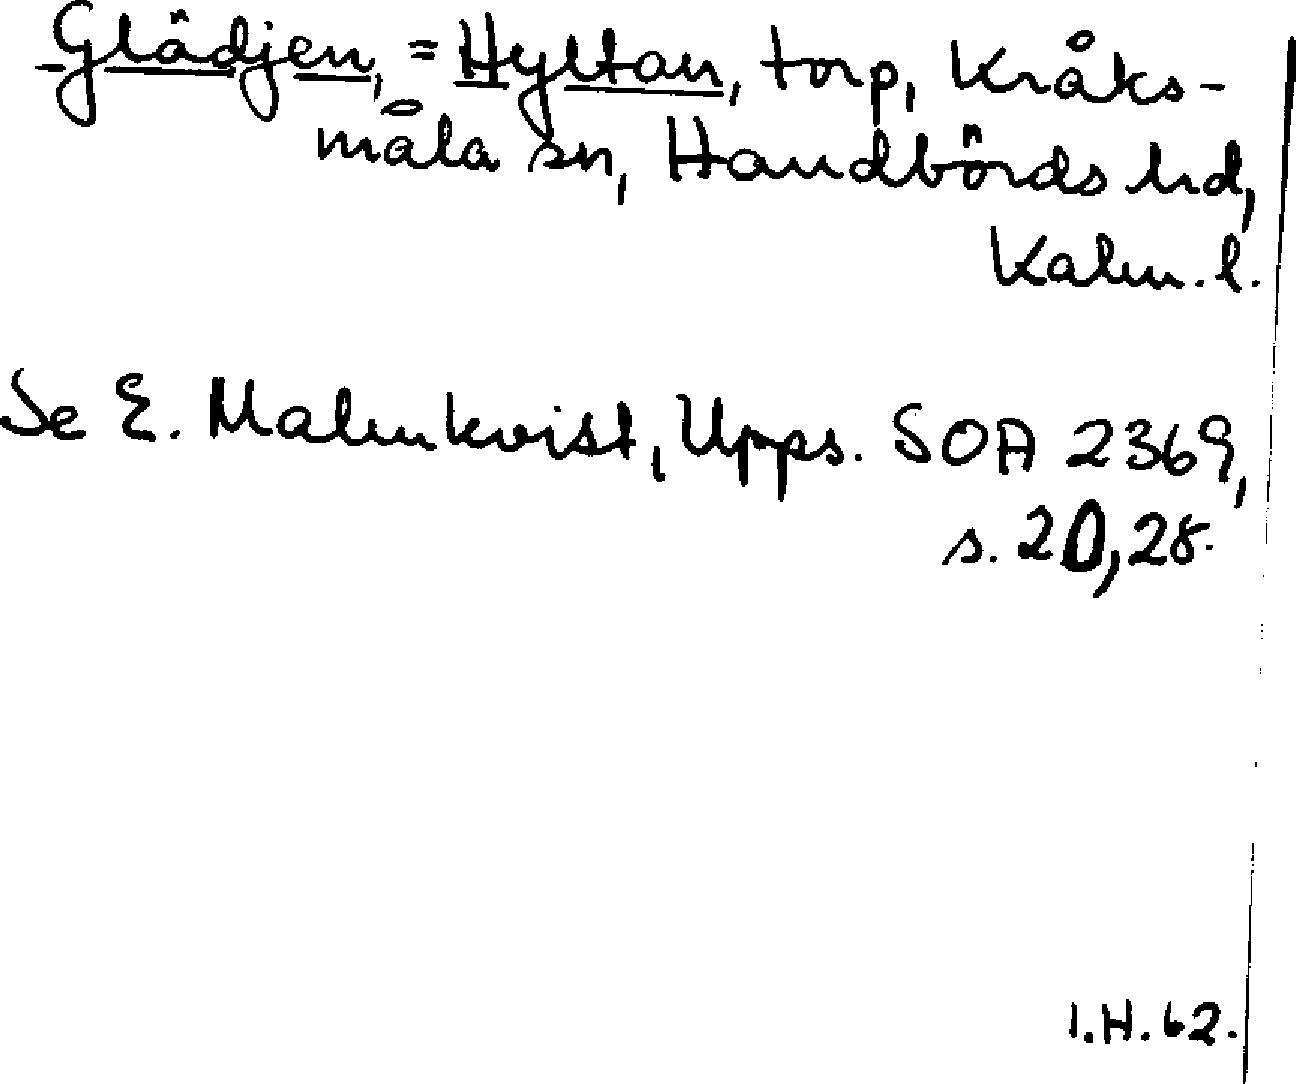 Glädjen, = Hyltan, torp, Kråks-
måla sn, Handbörds hd,
Kalm. l.
Se E. Malmkvist, Upps. SOA 2369,
s. 20, 28.
I.H. 62.